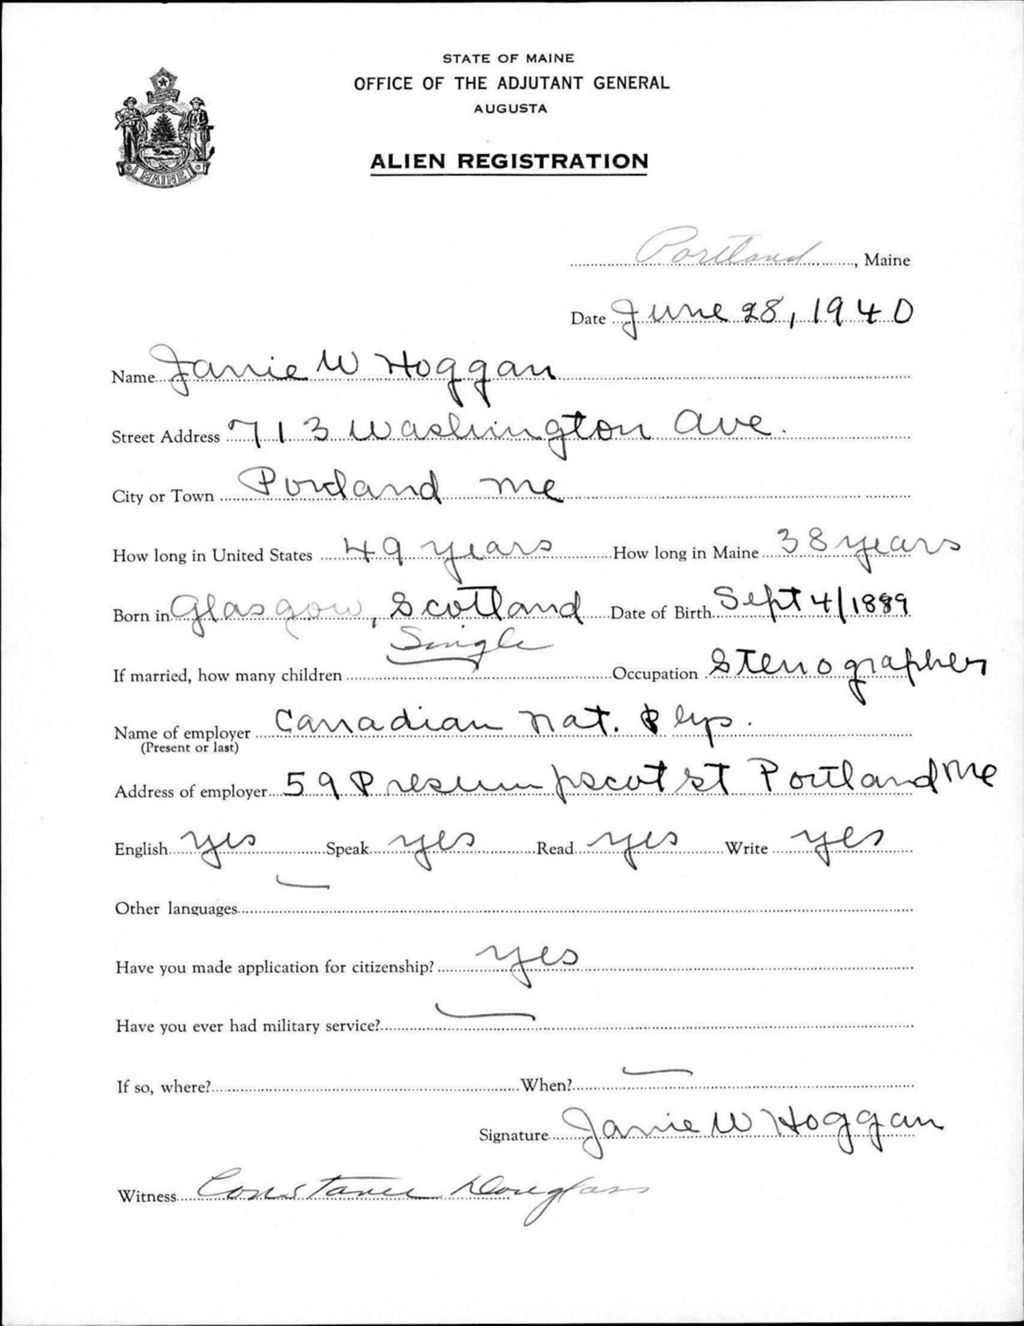 STATE OF MAINE
OFFICE OF THE ADJUTANT GENERAL
AUGUSTA
ALIEN REGISTRATION
MAINE
Portland, Maine
Date June 28, 1940
Name Janie W Hoggan
Street Address 713 Washington Ave.
City or Town Portland Me
How long in United States 49 years How long in Maine 38 years
Born in Glasgow, Scotland Date of Birth Sept 4/1889
Single
If married, how many children Occupation Stenographer
Name of employer Canadian Nat. Rlys.
(Present or last)
Address of employer 59 Presumpscot St Portland Me
English yes Speak yes Read yes Write yes
Other languages
Have you made application for citizenship? yes
Have you ever had military service?
If so, where? When?
Signature Janie W Hoggan
Witness Constance Douglass